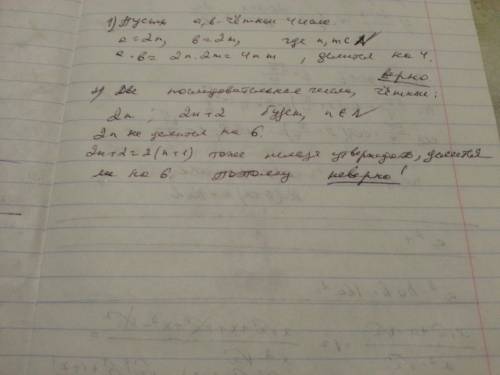 1) Пусть a, b - чётные числа.
a = 2n, b = 2m, где n, m ∈ N
a · b = 2n · 2m = 4nm, делится на 4.
верно
2) Две последовательные числа, чётные:
2n, 2n+2 будут, n ∈ N
2n не делится на 6.
2n+2=2(n+1) тоже нельзя утверждать, делится
ли на 6. поэтому неверно!